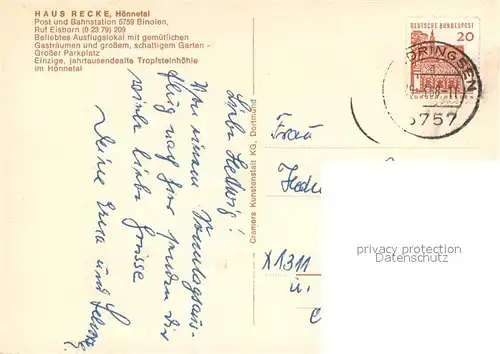 HAUS RECKE, Hönnetal
Post und Bahnstation 5759 Binolen,
Ruf Eisborn (0 23 79) 209
Beliebtes Ausflugslokal mit gemütlichen
Gasträumen und großem, schattigem Garten -
Großer Parkplatz
Einzige, jahrtausendealte Tropfsteinhöhle
im Hönnetal
Liebe Hedwig!
Von einem Sonntagsaus-
flug nach hier senden dir
viele liebe Grüsse
Deine Erna und
Cramers Kunstanstalt KG, Dortmund
DEUTSCHE BUNDESPOST
20
DRINGSEN
5757
Frau
Hed
X1311
privacy protection
Datenschutz